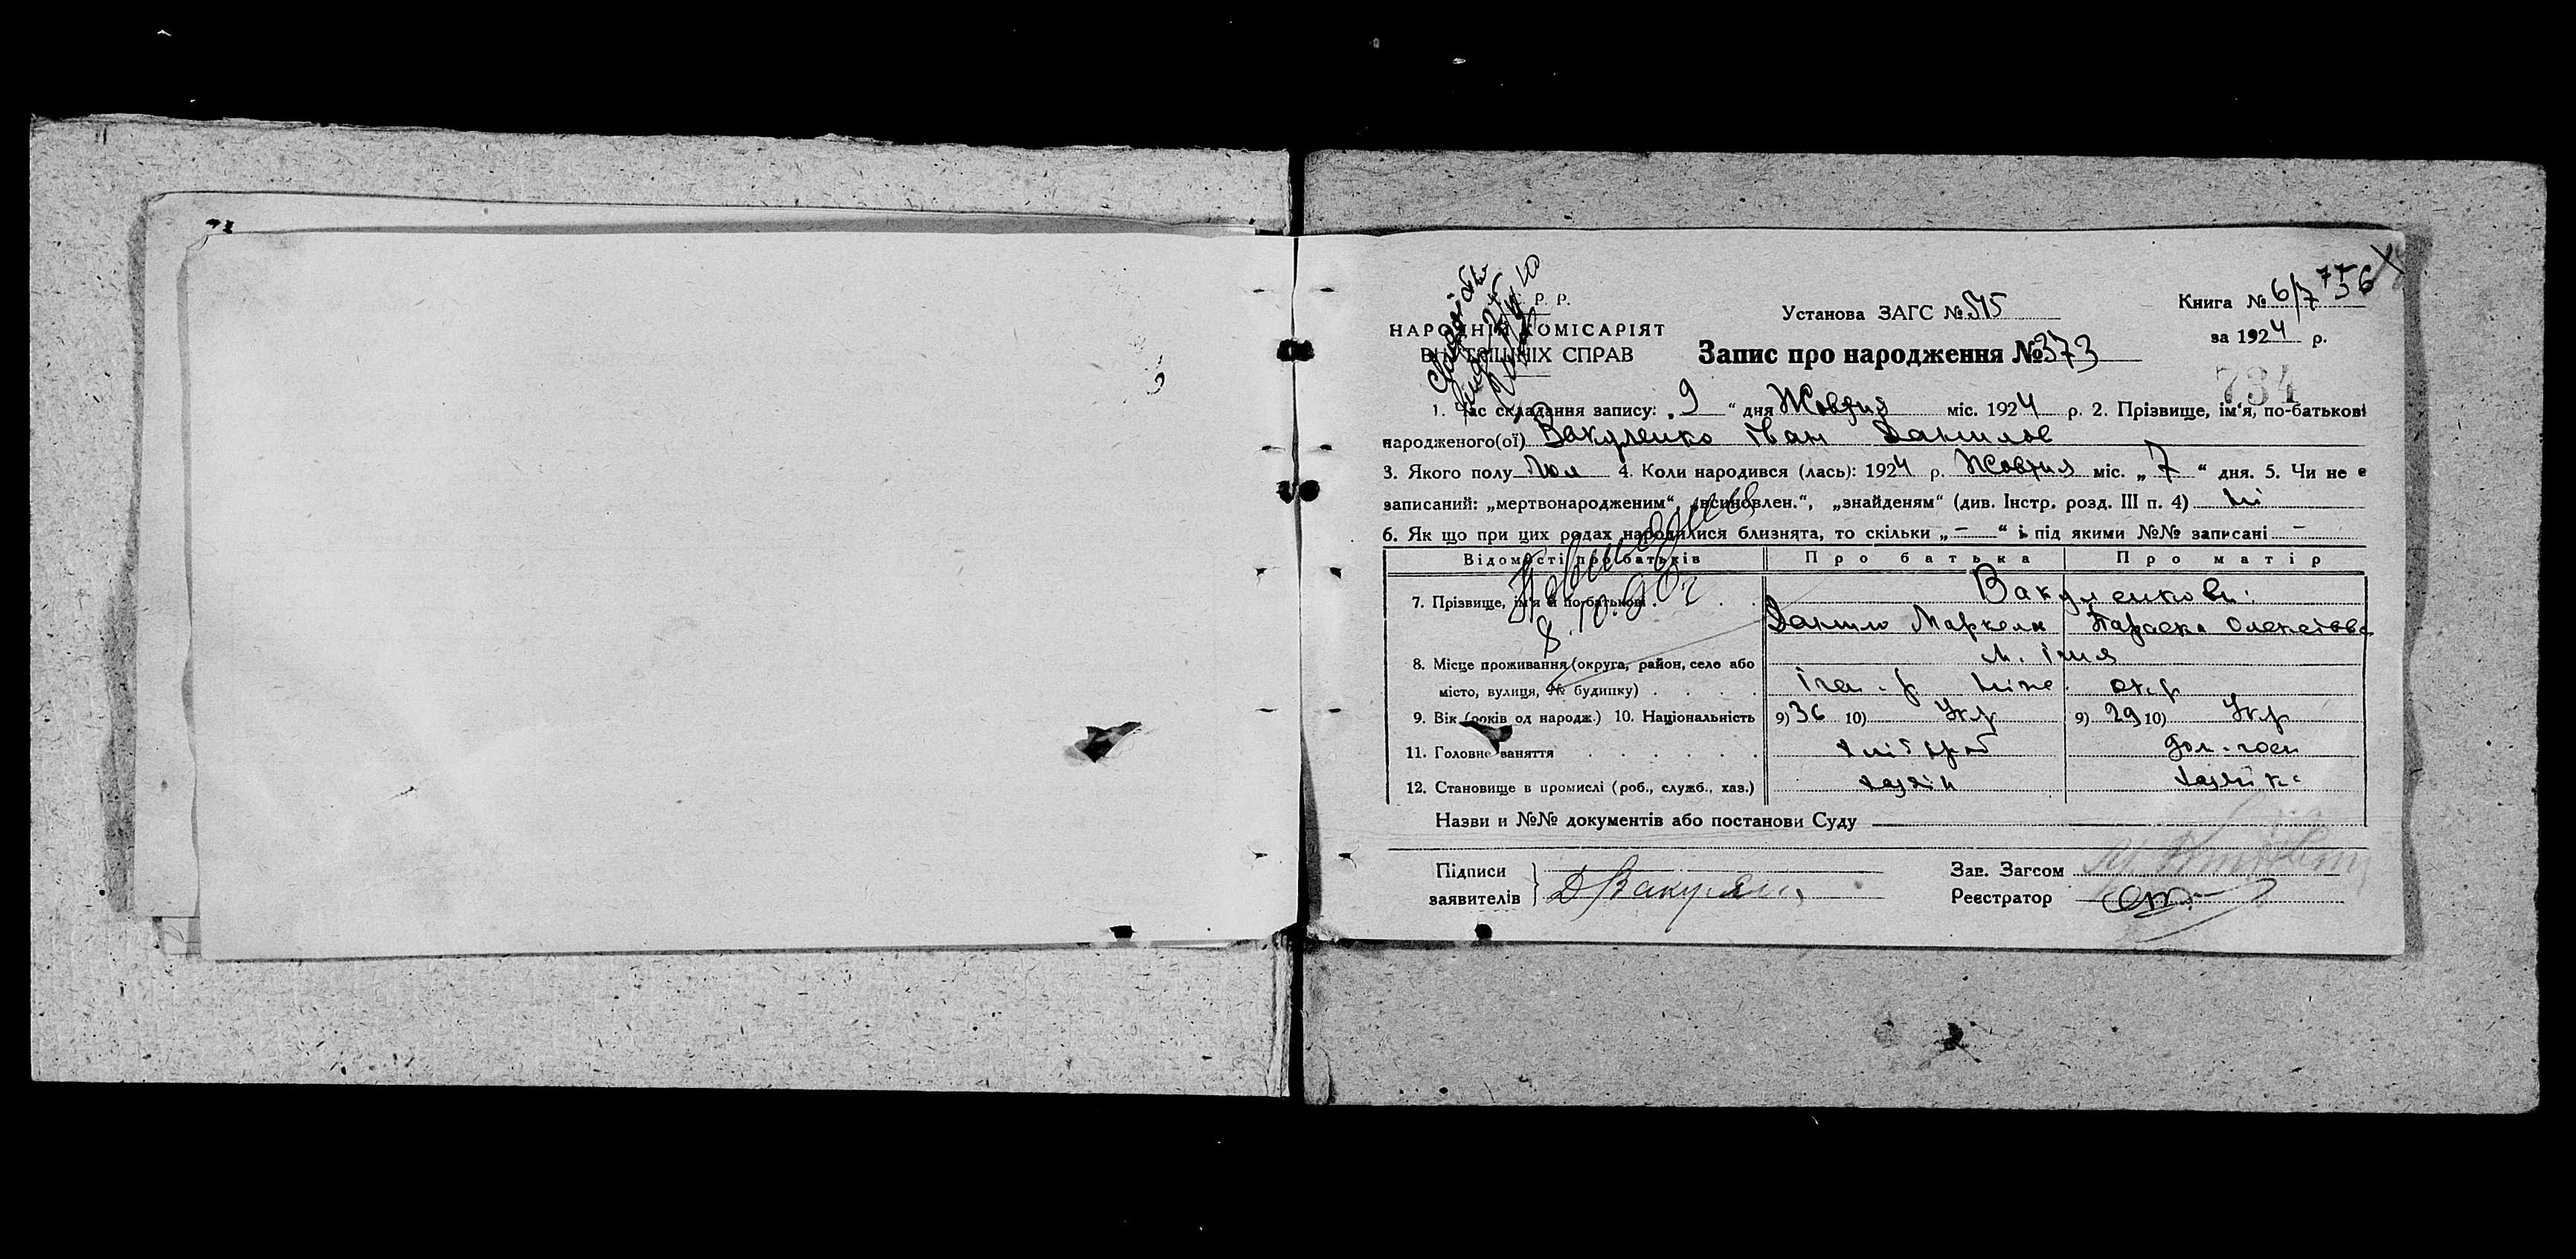 Р. Р.
НАРОДНІЙ КОМІСАРІЯТ
ВНУТРІШНІХ СПРАВ
Установа ЗАГС №
Книга № 6/7
за 1924 р.
Запис про народження № 373
734
1. Час складання запису: „9“ дня Жовтня міс. 1924 р. 2. Прізвище, ім'я, по-батькові
народженого(ої) Вакуленко Іван Данилов
3. Якого полу Чол 4. Коли народився (лась): 1924 р. Жовтня міс. „7“ дня. 5. Чи не є
записаний: „мертвонародженим“, „всиновлен.“, „знайденям“ (див. Інстр. розд. III п. 4) ні
6. Як що при цих родах народилися близнята, то скільки „—“ і під якими №№ записані —
Відомості про батьків Про батька Про матір
7. Прізвище, ім'я й по-батькові . Вакуленкови:
Данило Маркелн Параска Олексіевв
8. Місце проживання (округа, район, село або м. Ічня
місто, вулиця, № будинку) . Ічн. р Ніже. окр
9. Вік (років од народж.) 10. Національність 9) 36 10) Укр 9) 29 10) Укр
11. Головне заняття хлібороб дом. госп
12. Становище в промислі (роб., служб., хаз.) хазяін хазяйка
Назви и №№ документів або постанови Суду
Підписи
заявителів
Д Вакулен
Зав. Загсом
Реєстратор
8.10.90 г